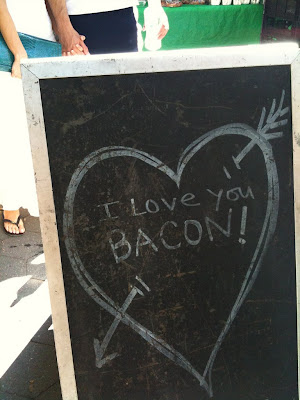 I Love You
BACON!